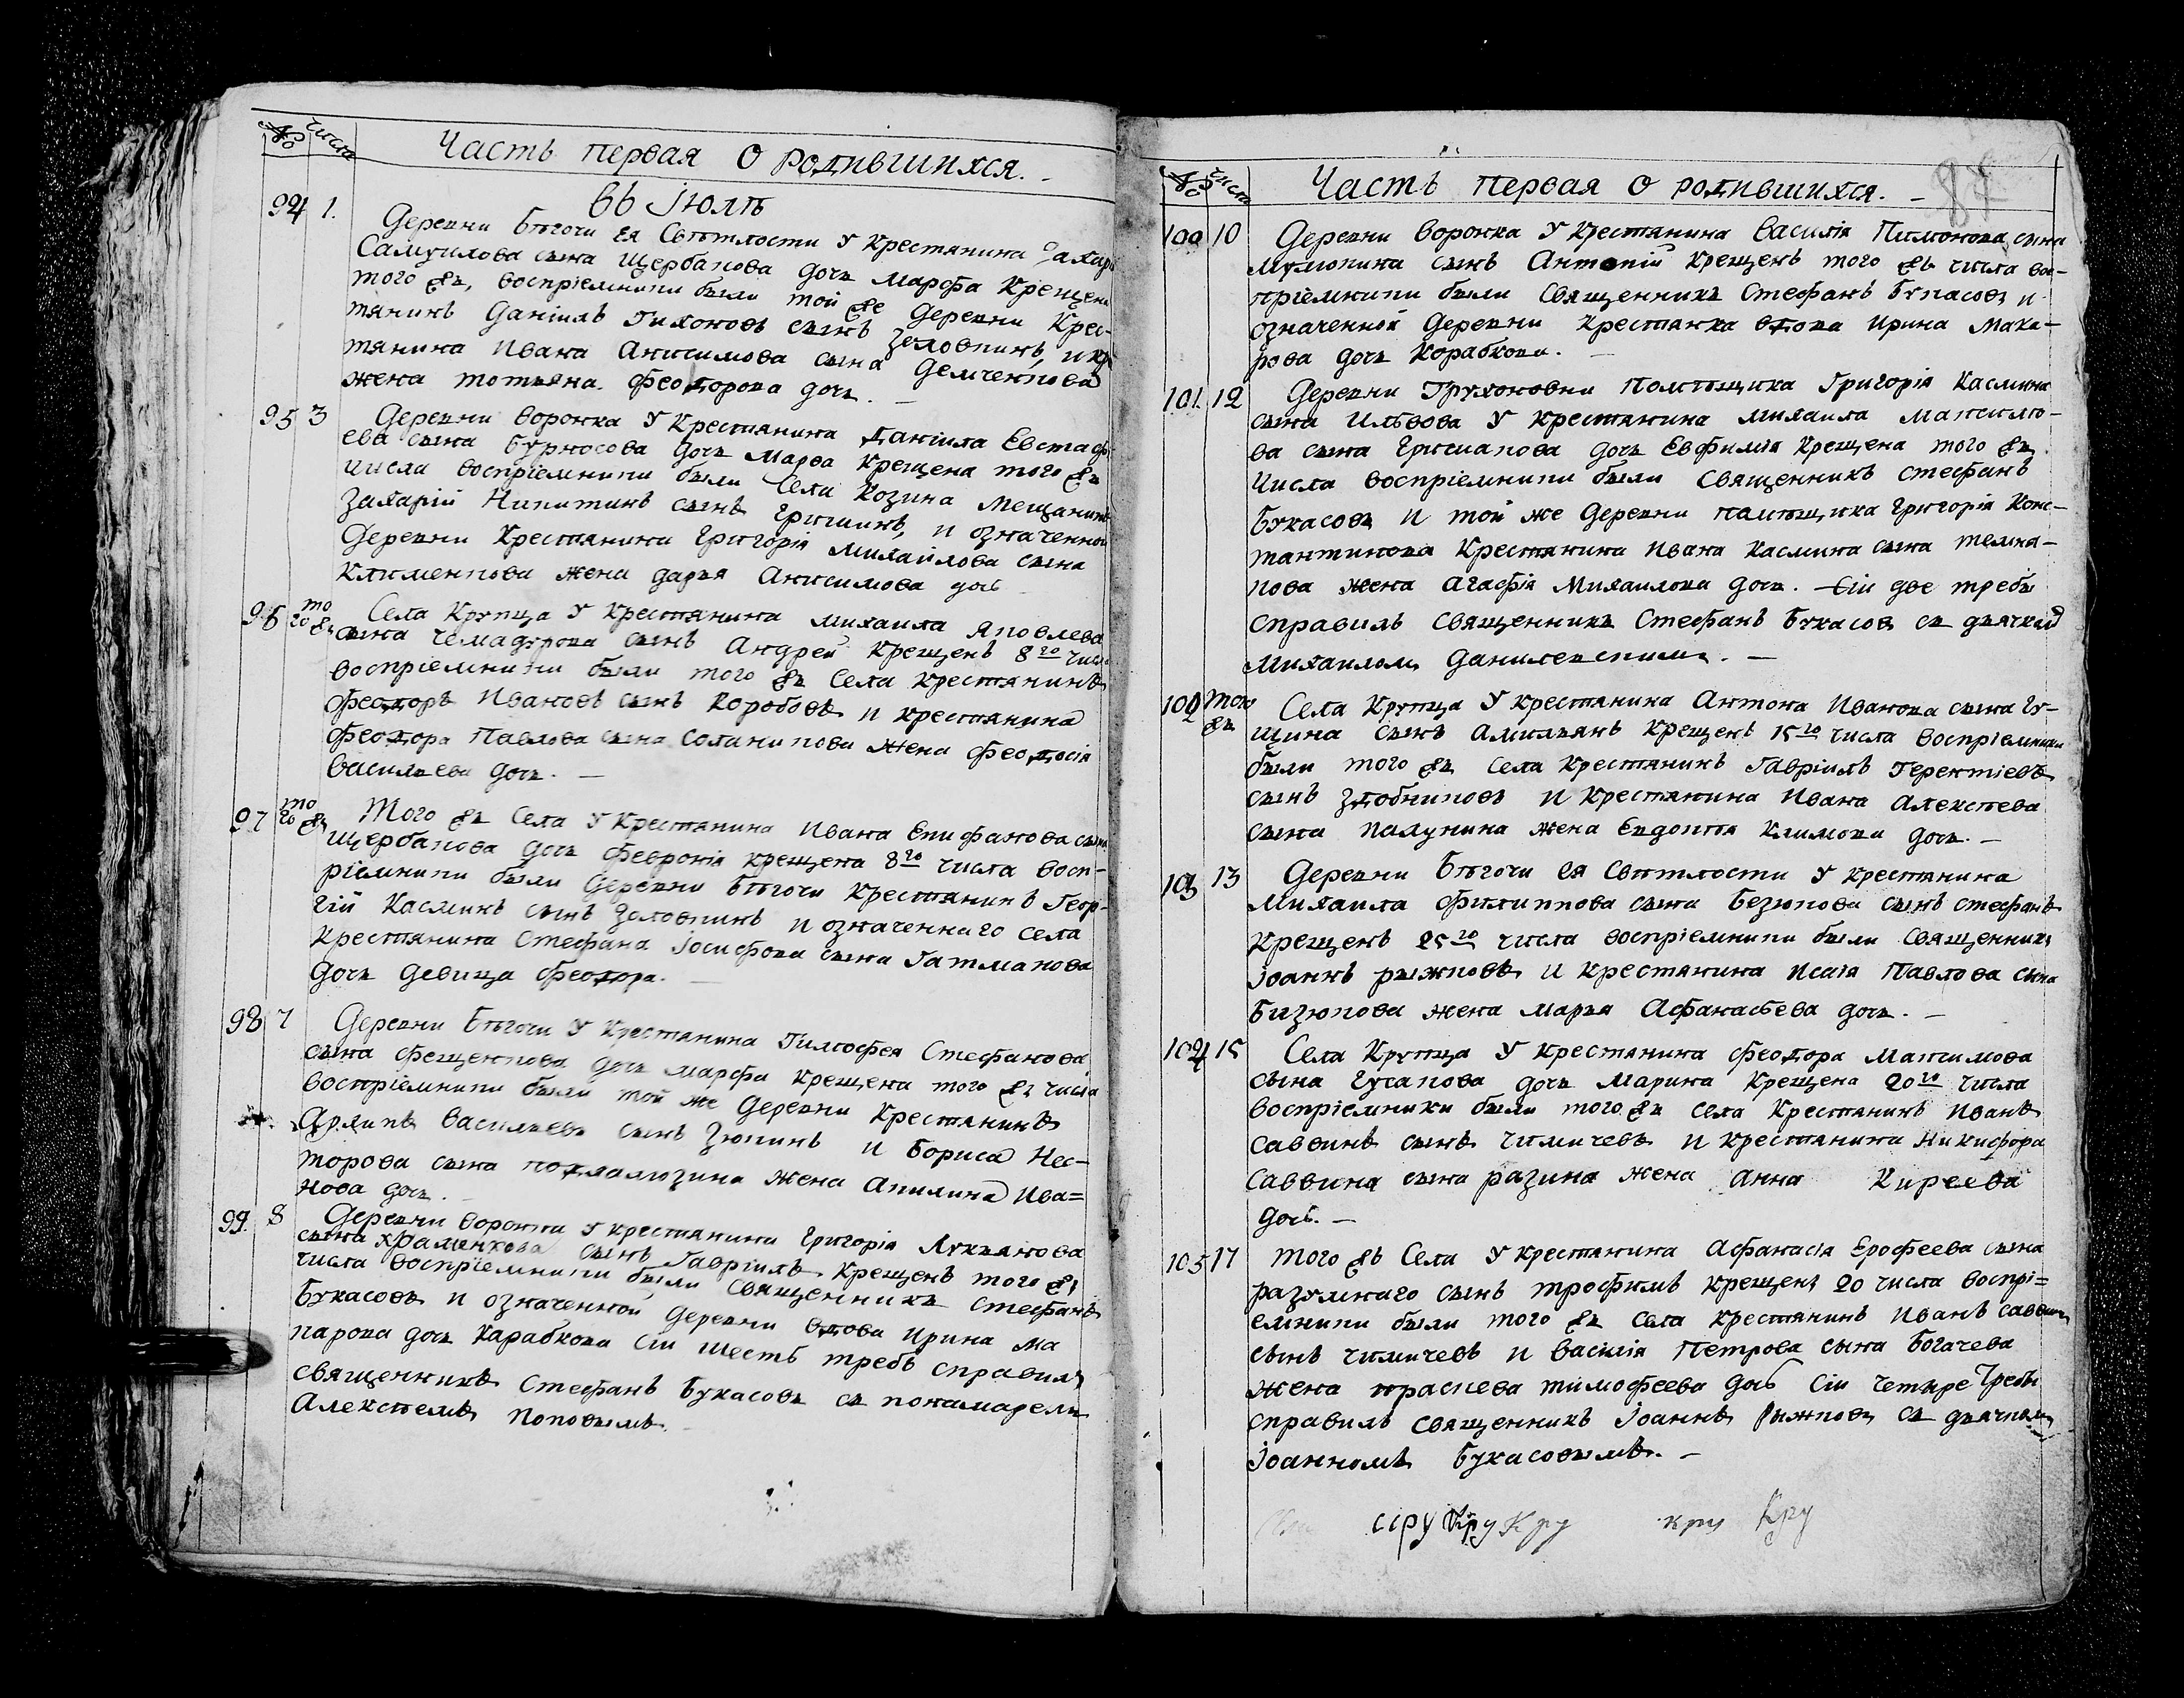 № числа
Часть первая о родившихся.
въ Іюлѣ
94 1. Деревни Бѣгочи ея Свѣтлости у крестянина Захара
Самуилова сына Щербакова дочь Марфа крещена
того жъ, воспріемники были той же деревни крес-
тянинъ Даніилъ Тихоновъ сынъ Золовкинъ, и кр
тянина Ивана Анисимова сына Демченкова
жена тотьяна Феодорова дочь. —
95 3 Деревни Воронка у крестянина Даніила Евстафі
ева сына Бурносова дочь Марѳа крещена того жъ
числа воспріемники были села Козина мещанинъ
Захарій Никитинъ сынъ Гришинъ, и означенной
деревни крестянина Григорія Михайлова сына
Клименкова жена дарья Анисимова дочь
96 того жъ Села Крупца у крестянина Михаила Яковлева
сына Чемадурова сынъ Андрей крещенъ 8го числ
воспріемники были того жъ села крестянинъ
Феодоръ Ивановъ сынъ Коробовъ и крестянина
Феодора Павлова сына Соланикова жена Феодосія
Васильева дочь. —
97 того жъ Того жъ села у крестянина Ивана Епифанова сына
Щербакова дочь Февронія крещена 8го числа восп-
ріемники были деревни Бѣгочи крестянинъ Геор-
гій Касминъ сынъ Золовкинъ и означеннаго села
крестянина Стефана Іосифова сына Гатманова
дочь девица Феодора. —
98 7 Деревни Бѣгочи у крестянина Тимофея Стефанова
сына Фещенкова дочь Марфа крещена того жъ числа
воспріемники были той же деревни крестянинъ
Архипъ Васильевъ сынъ Зюкинъ и Бориса Нес-
торова сына Подлалюзина жена Акилина Ива=
нова дочь. —
99. 8 Деревни Воронка у крестянина Григорія Лукьянова
сына Храменкова сынъ Гавріилъ крещенъ того жъ
числа воспріемники были священникъ Стефанъ
Букасовъ и означенной деревни вдова Ирина Ма
карова дочь Карабкова сіи шесть требъ справилъ
священникъ Стефанъ Букасовъ съ понамаремъ
Алексѣемъ Поповымъ. —
87
№ числа
Часть первая о родившихся. —
100 10 Деревни Воронка у крестянина Василія Пимонова сына
Мумонина сынъ Антоній крещенъ того жъ числа вос-
пріемники были священникъ Стефанъ Букасовъ и
означенной деревни крестянка вдова Ирина Мака-
рова дочь Корабкова. —
101. 12 Деревни Трухоновки помѣщика Григорія Касмина
сына Ильвова у крестянина Михаила Максимо-
ва сына Грисманова дочь Евфимія крещена того жъ
числа воспріемники были священникъ Стефанъ
Букасовъ и той же деревни помѣщика Григорія Конс-
тантинова крестянина Ивана Касмина сына Темна-
кова жена Агафія Михаилова дочь. — Сіи две требы
справилъ священникъ Стефанъ Букасовъ съ дьячкомъ
Михаиломъ Данилевскимъ. —
102 того жъ Села Крупца у крестянина Антона Иванова сына Гу-
щина сынъ Амильянъ крещенъ 15го числа воспріемники
были того жъ села крестянинъ Гавріилъ Терентіевъ
сынъ Здобниковъ и крестянина Ивана Алексѣева
сына Пахунина жена Евдокія Климова дочь. —
103 13 Деревни Бѣгочи ея Свѣтлости у крестянина
Михаила Филиппова сына Безюкова сынъ Стефанъ
крещенъ 25го числа воспріемники были священникъ
Іоаннъ Рыжковъ и крестянина Исаія Павлова сына
Бизюкова жена Марья Афанасьева дочь. —
104 15 Села Крупца у крестянина Феодора Максимова
сына Гусакова дочь Марина крещена 20го числа
воспріемники были того жъ села крестянинъ Иванъ
Саввинъ сынъ Чимичевъ и крестянина Никифора
Саввина сына Разина жена Анна Киреева
дочь. —
105 17 Того жъ села у крестянина Афанасія Ерофеева сына
Разумнаго сынъ Трофимъ крещенъ 20 числа воспрі=
емники были того жъ села крестянинъ Иванъ Саввинъ
сынъ Чимичевъ и Василія Петрова сына Богачева
жена Праскева Тимофеева дочь сіи четыре требы
справилъ священникъ Іоаннъ Рыжковъ съ дьячкомъ
Іоанномъ Букасовымъ. —
кру Кру кру Кру